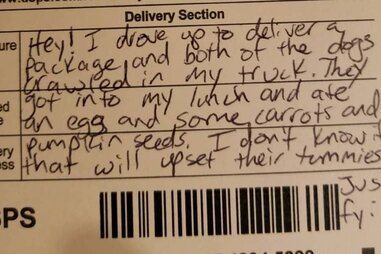 Delivery Section
ure Hey! I drove up to deliver a
package and both of the dogs
crawled in my truck. They
ed got into my lunch and ate
an egg and some carrots and
ery pumpkin seeds. I don't know if
ess that will upset their tummies
Jus
fyi
PS